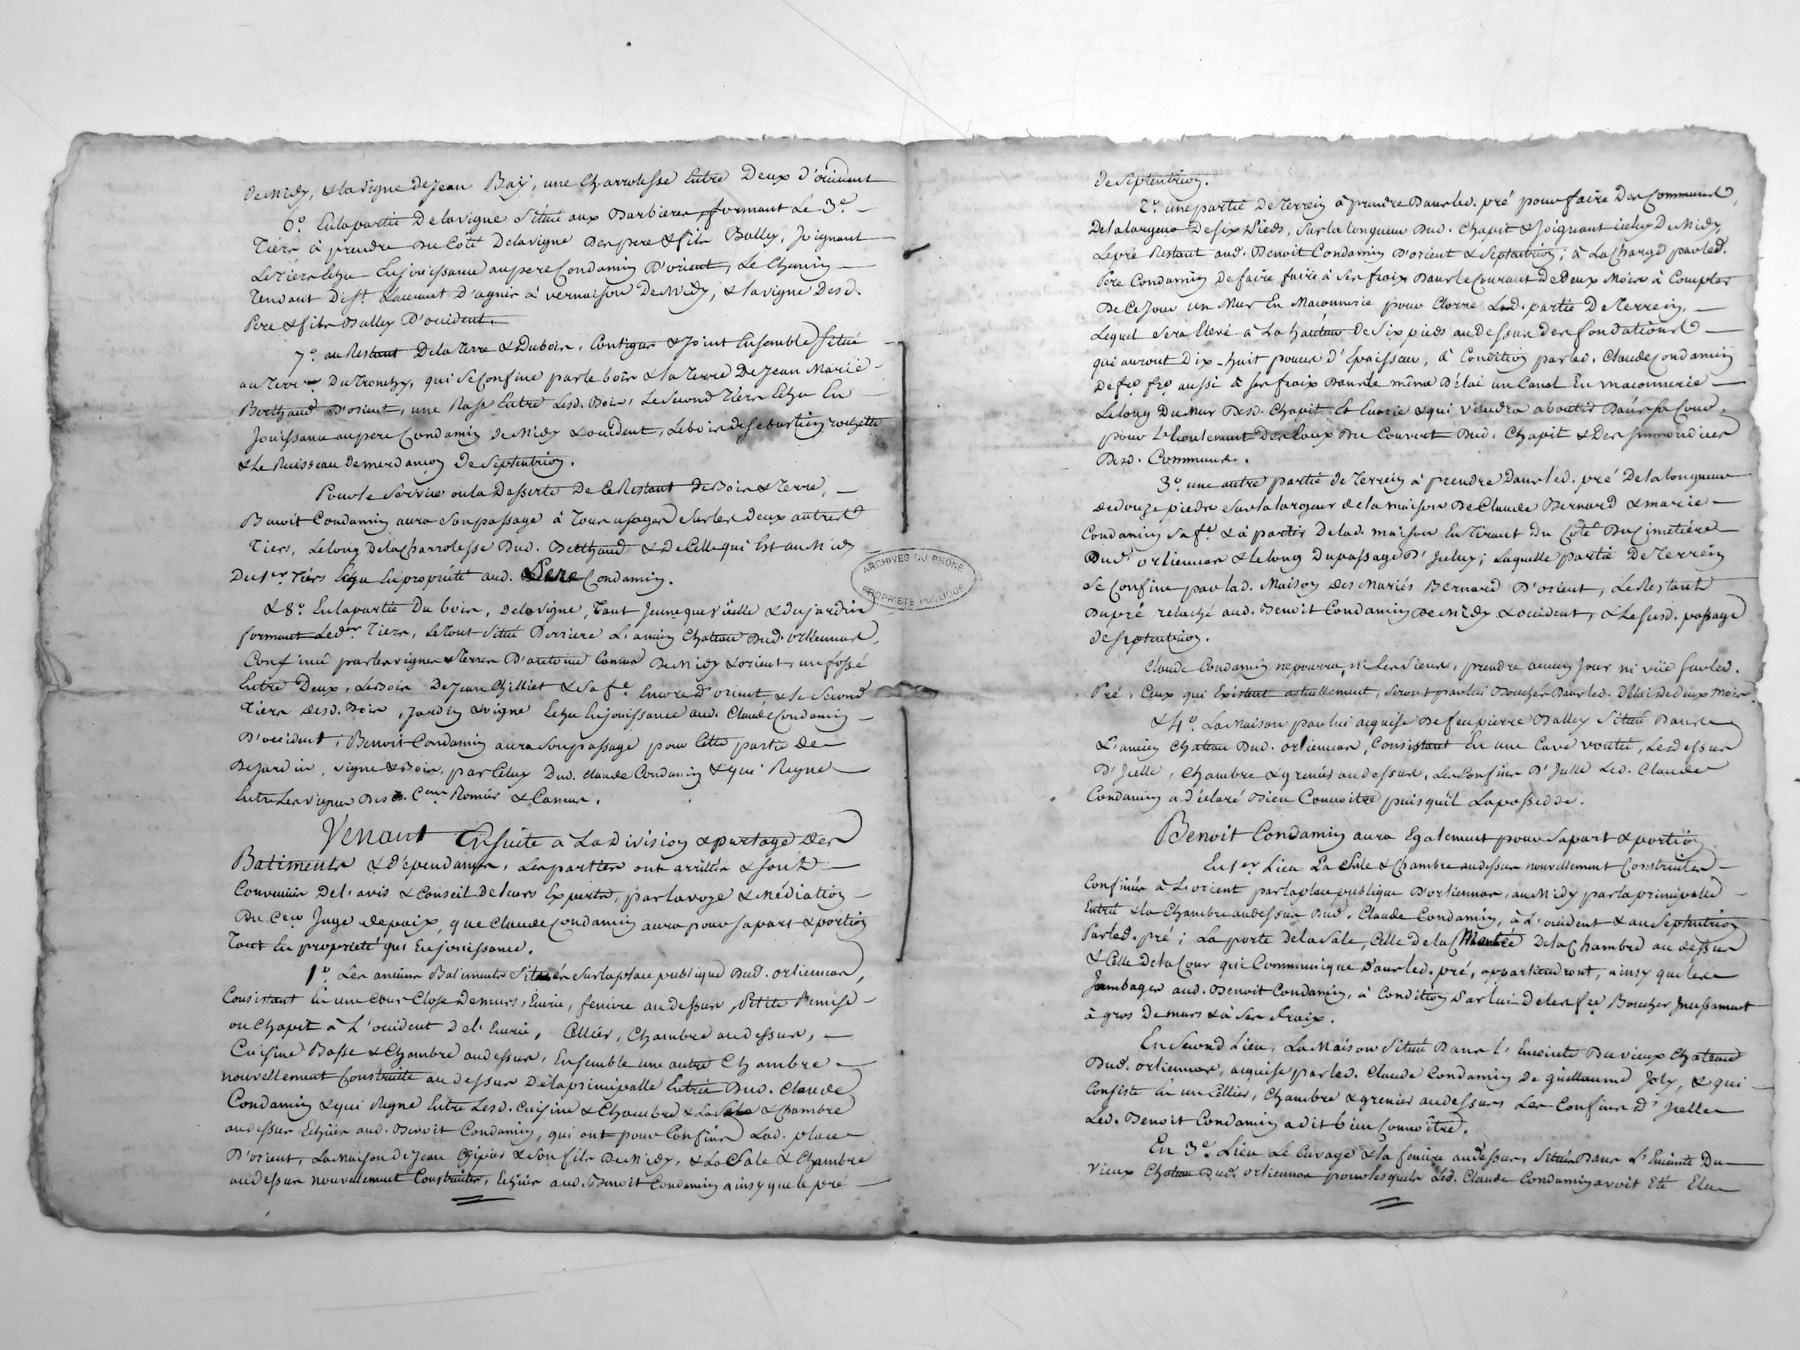 de Midy, & la vigne de Jean Baÿ, une Charrolesse Entre Deux d'occident
6.º En la partie de la vigne Située aux Barbieres, formant Le 3.e
Tiers à prendre du Côté de la vigne des pere & fils Balley, Joignant
Le Tiers Echu En jouissance au pere Condamin D'orient, Le Chemin
Tendant de St Laurent D'agnir à vernaison De Midy, & la vigne Desd.
Pere & fils Balley D'occident.
7.º au Restant De la Terre & Du bois, Contigus & Joint Ensemble Situé
au Terr.re Du Tronchy, qui Se Confine par le bois & la Terre De Jean Marie
Berthaud D'orient, une Rase Entre Lesd. Bois, Le Second Tiers Echu En
Jouissance au pere Condamin de Midy & occident, Le bois de Sebastien rouzette
& Le Ruisseau de merdançon De Septentrion.
Pour le Service ou la Desserte De Ce Restant de Bois & Terre,
Benoit Condamin aura Son passage à Tous usages Sur les deux autres
Tiers, Le long de la Charrolesse Dud. Berthaud & De Celle qui Est au Midy
Du 1.er Tiers Echu En propriété aud. Pere Condamin.
& 8.º En la partie Du bois, de la vigne, Tant Jeune que vieille & du jardin
formant Led.er Tiers, Le Tout Situé Derriere L'ancien Chateau Dud. orlienas,
Confiné par les vignes & Terres D'antoine Camus De Midy & orient, un fossé
Entre Deux, Le Bois De Jean Chilliet & Sa f.e Encore d'orient & Le Second
Tiers desd. Bois, Jardin & vigne Echu En jouissance aud. Claude Condamin
D'occident; Benoit Condamin aura Son passage pour Cette partie de
De jardin, vigne & Bois, par Celuy Dud. Claude Condamin & qui Regne
Entre Les vignes Desd. C.ens Romier & Camus.
Venant Ensuite à La Division & partage Des
Batiments & dépendances, Les parties ont arrêtés & Sont
Convenues De l'avis & Conseil de Leurs Experts, par la voye & Médiation
Du C.en Juge de paix, que Claude Condamin aura pour Sa part & portion
Tant En propriété qu'En jouissance,
1.º Les anciens Batiments Situés Sur la place publique Dud. orlienas,
Consistant En une Cour Close De murs, Ecurie, feniere au dessus, Petite Remise
ou Chapit à L'occident de l'Ecurie, Cellier, Chambre au dessus,
Cuisine Basse & Chambre au dessus, Ensemble une autre Chambre
nouvellement Construite au dessus De la principalle Entrée Dud. Claude
Condamin & qui Regne Entre Lesd. Cuisine & Chambre & La Sale & Chambre
au dessus Echües aud. Benoit Condamin, qui ont pour Confins Lad. place
D'orient, La Maison de Jean & Son fils De Midy, & La Sale & Chambre
au dessus nouvellement Construites, Echües aud. Benoit Condamin ainsy que le pré
de Septentrion.
2.º une partie de Terrein à prendre Dans led. pré pour faire Des Communs,
De la largeur De Six Pieds, Sur la longueur Dud. Chapit & Joignant iceluy De Midy,
Le pré Restant aud. Benoit Condamin D'orient & Septentrion; à La Charge par led.
Pere Condamin de faire faire à Ses fraix Dans Le Courant De Deux Mois à Compter
De Ce Jour un Mur En Maconnerie pour Clorre Lad. partie De Terrein,
Lequel Sera Elevé à La hauteur de Six pieds au dessus des fondations
qui auront Dix-huit pouces d'Epaisseur, à Condition par led. Claude Condamin
De f.re f.re aussi à Ses fraix Dans le même Délai un Canal En maconnerie
Le long Du Mur Desd. Chapit Et Ecurie & qui viendra aboutir Dans Sa Cour,
pour L'Ecoulement Des Eaux Du Couvert Dud. Chapit & Des immondices
Desd. Communs.
3.º une autre partie De Terrein à prendre Dans led. pré De la longueur
de douze pieds Sur la largeur de la maison De Claude Bernard & marie
Condamin Sa f.e & à partir De lad. maison En Tirant Du Côté Du Cimetière
Dud. orlienas & Le long Du passage D'Icelui; Laquelle partie De Terrein
Se Confine par lad. Maison des Mariés Bernard D'orient, Le Restant
Du pré relaché aud. Benoit Condamin De Midy & occident, & Le Susd. passage
de Septentrion.
Claude Condamin ne pourra, ni Les Siens, prendre aucun Jour ni vüe Sur led.
Pré, Ceux qui Existent actuellement, Seront par lui Bouchés Dans led. Délai De deux Mois
& 4.º La Maison par lui acquise De feu pierre Balley Située Dans
L'ancien Chateau Dud. orlienas, Consistant En une Cave voutée, Le dessus
D'Icelle, Chambre & grenier au dessus, Les Confins D'Icelle Led. Claude
Condamin a déclaré Bien Connoitre puisqu'il La possedde.
Benoit Condamin aura Egalement pour Sa part & portion
En 1.er Lieu La Sale & Chambre au dessus nouvellement Construites
Confinées à L'orient par la place publique D'orlienas, au Midy par la principalle
Entrée & la Chambre au dessus Dud. Claude Condamin, à L'occident & au Septentrion
Par led. pré; La porte de la Sale, Celle de la Montée de la Chambre au dessus
& Celle De la Cour qui Communique Dans led. pré, appartiendront, ainsy que les
Jambages aud. Benoit Condamin, à Condition Par lui de les f.re Boucher Incessament
à gros De murs & à Ses fraix.
En Second Lieu, La Maison Située Dans l'Enceinte Du vieux Chateau
Dud. orlienas, acquise par led. Claude Condamin De guillaume Joly, & qui
Consiste En un Cellier, Chambre & grenier au dessus Les Confins d'Icelle
Led. Benoit Condamin a dit bien Connoître.
En 3.e Lieu Le Cuvage & la feniere au dessus, Situés Dans L'Enceinte Du
vieux Chateau Dud. orlienas pour lesquels Led. Claude Condamin avoit Eté Elu
ARCHIVES DU RHONE
PROPRIETE PUBLIQUE